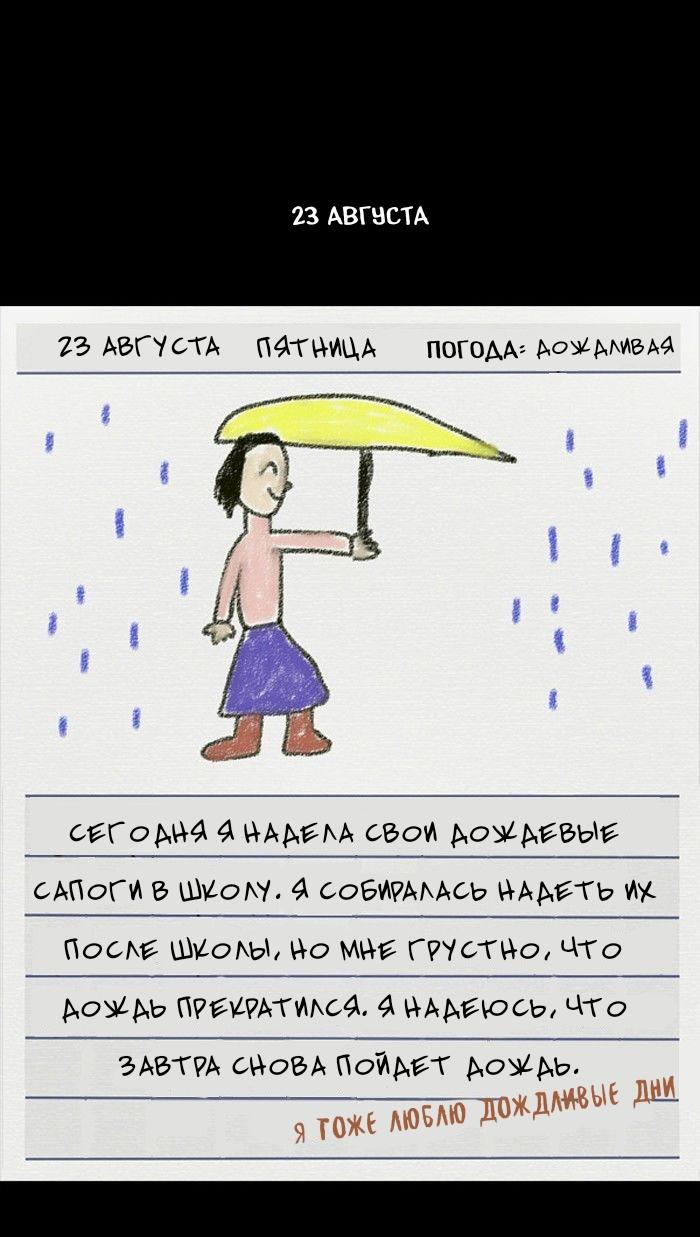 23 АВГУСТА
23 АВГУСТА ПЯТНИЦА ПОГОДА: ДОЖДЛИВАЯ
СЕГОДНЯ Я НАДЕЛА СВОИ ДОЖДЕВЫЕ
САПОГИ В ШКОЛУ. Я СОБИРАЛАСЬ НАДЕТЬ ИХ
ПОСЛЕ ШКОЛЫ, НО МНЕ ГРУСТНО, ЧТО
ДОЖДЬ ПРЕКРАТИЛСЯ. Я НАДЕЮСЬ, ЧТО
ЗАВТРА СНОВА ПОЙДЕТ ДОЖДЬ.
Я ТОЖЕ ЛЮБЛЮ ДОЖДЛИВЫЕ ДНИ